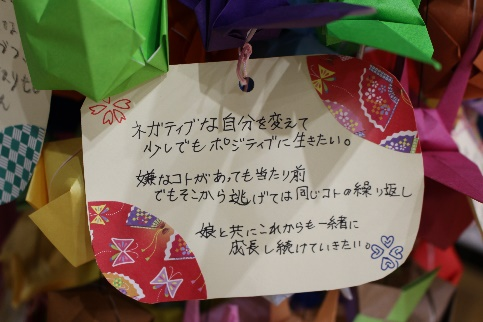 ネガティブな自分を変えて
少しでもポジティブに生きたい。
嫌なコトがあっても当たり前
でもそこから逃げては同じコトの繰り返し
娘と共にこれからも一緒に
成長し続けていきたい。